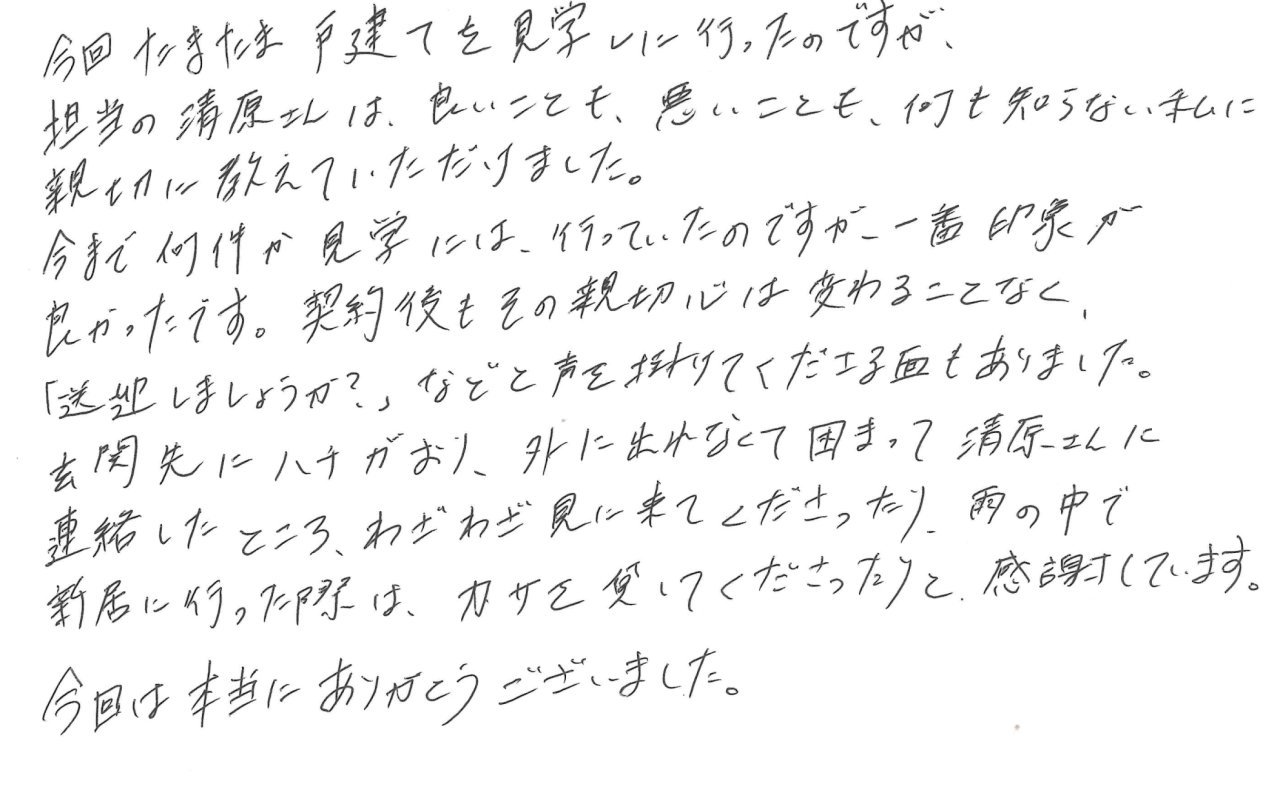 今回たまたま戸建てを見学しに行ったのですが、
担当の清原さんは、良いことも、悪いことも、何も知らない私に
親切に教えていただけました。
今まで何件か見学には、行っていたのですが、一番印象が
良かったです。契約後もその親切心は変わることなく、
「送迎しましょうか?」などと声を掛けてくださる面もありました。
玄関先にハチがおり、外に出れなくて困まって清原さんに
連絡したところ、わざわざ見に来てくださったり、雨の中で
新居に行った際は、カサを貸してくださったりと、感謝しています。
今回は本当にありがとうございました。